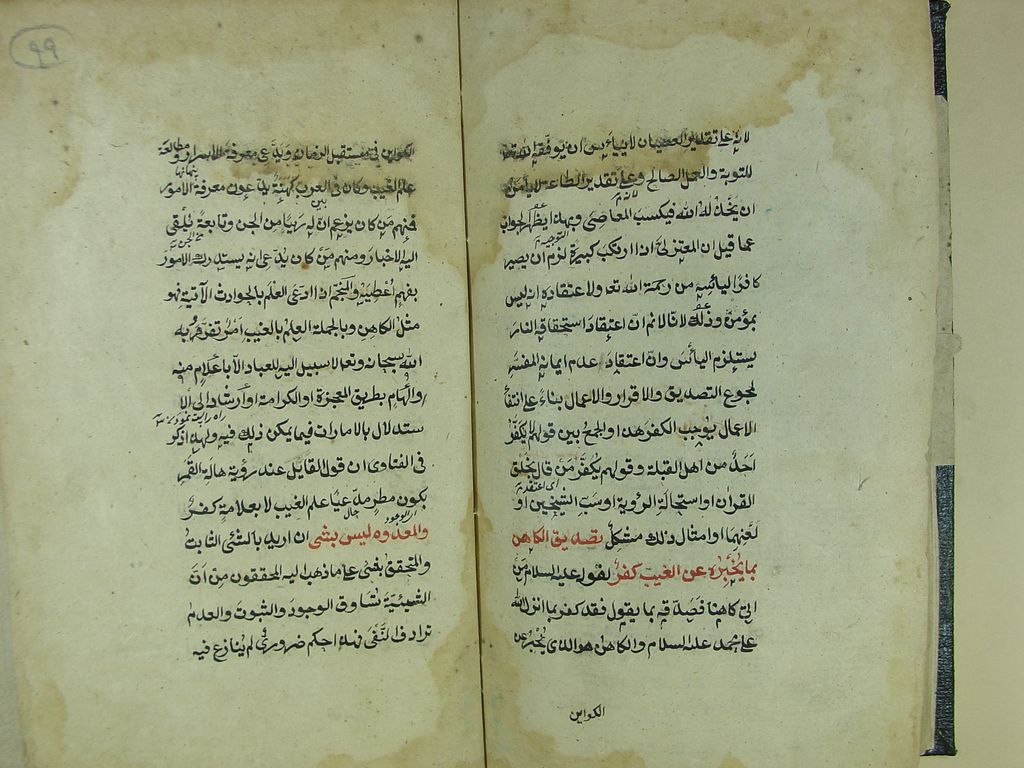 لانه على تقدير العصيان لا ييأس ان يوفقه الله تعالى
للتوبة والعمل الصالح وعلى تقدير الطاعة لا يأمن
ان يخذله الله فيكسب المعاصى وبهذا يظهر الجواب
عما قيل ان المعتزلى اذا ارتكب كبيرة لزم ان يصير
كافرا ليأسه من رحمة الله تعا ولاعتقاده انه ليس
بمؤمن وذلك لانا لانم ان اعتقاد استحقاقه النار
يستلزم اليأس وان اعتقاد عدم ايمانه المفسر
لمجموع التصديق والاقرار والاعمال بناء على انتفا
الاعمال يوجب الكفر هذا والجمع بين قولهم لا يكفر
احد من اهل القبلة وقولهم يكفر من قال بخلق
القران او استحالة الرؤية او سب الشيخين او
لعنهما او امثال ذلك مشكل تصديق الكاهن
بما يخبره عن الغيب كفر لقوله عليه السلام من
اتى كاهنا فصدقه بما يقول فقد كفر بما انزل الله
على محمد عليه السلام والكاهن هو الذى يخبر عن
الكواين
٩٩
الكواين فى مستقبل الزمان ويدعى معرفة الاسرار ومطالعة
علم الغيب وكان فى العرب كهنة يدعون معرفة الامور
فمنهم من كان يزعم ان له رئيا من الجن وتابعة يلقى
اليه الاخبار ومنهم من كان يدعى انه يستدرك الامور
بفهم اعطيه والمنجم اذا ادعى العلم بالحوادث الآتية فهو
مثل الكاهن وبالجملة العلم بالغيب امر تفرد به
الله سبحانه وتعا لا سبيل اليه للعباد الا باعلام منه
او الهام بطريق المعجزة او الكرامة او ارشاد الى الا
ستدلال بالامارات فيما يمكن ذلك فيه ولهذا ذكر
فى الفتاوى ان قول القايل عند رؤية هالة القمر
يكون مطر مدعيا علم الغيب لا بعلامة كفر
والمعدوم ليس بشئ ان اريد بالشئ الثابت
والمتحقق بغنى على ما ذهب اليه المحققون من ان
الشيئية تساوق الوجود والثبوت والعدم
ترادف النفى فهذا حكم ضرورى لم ينازع فيه